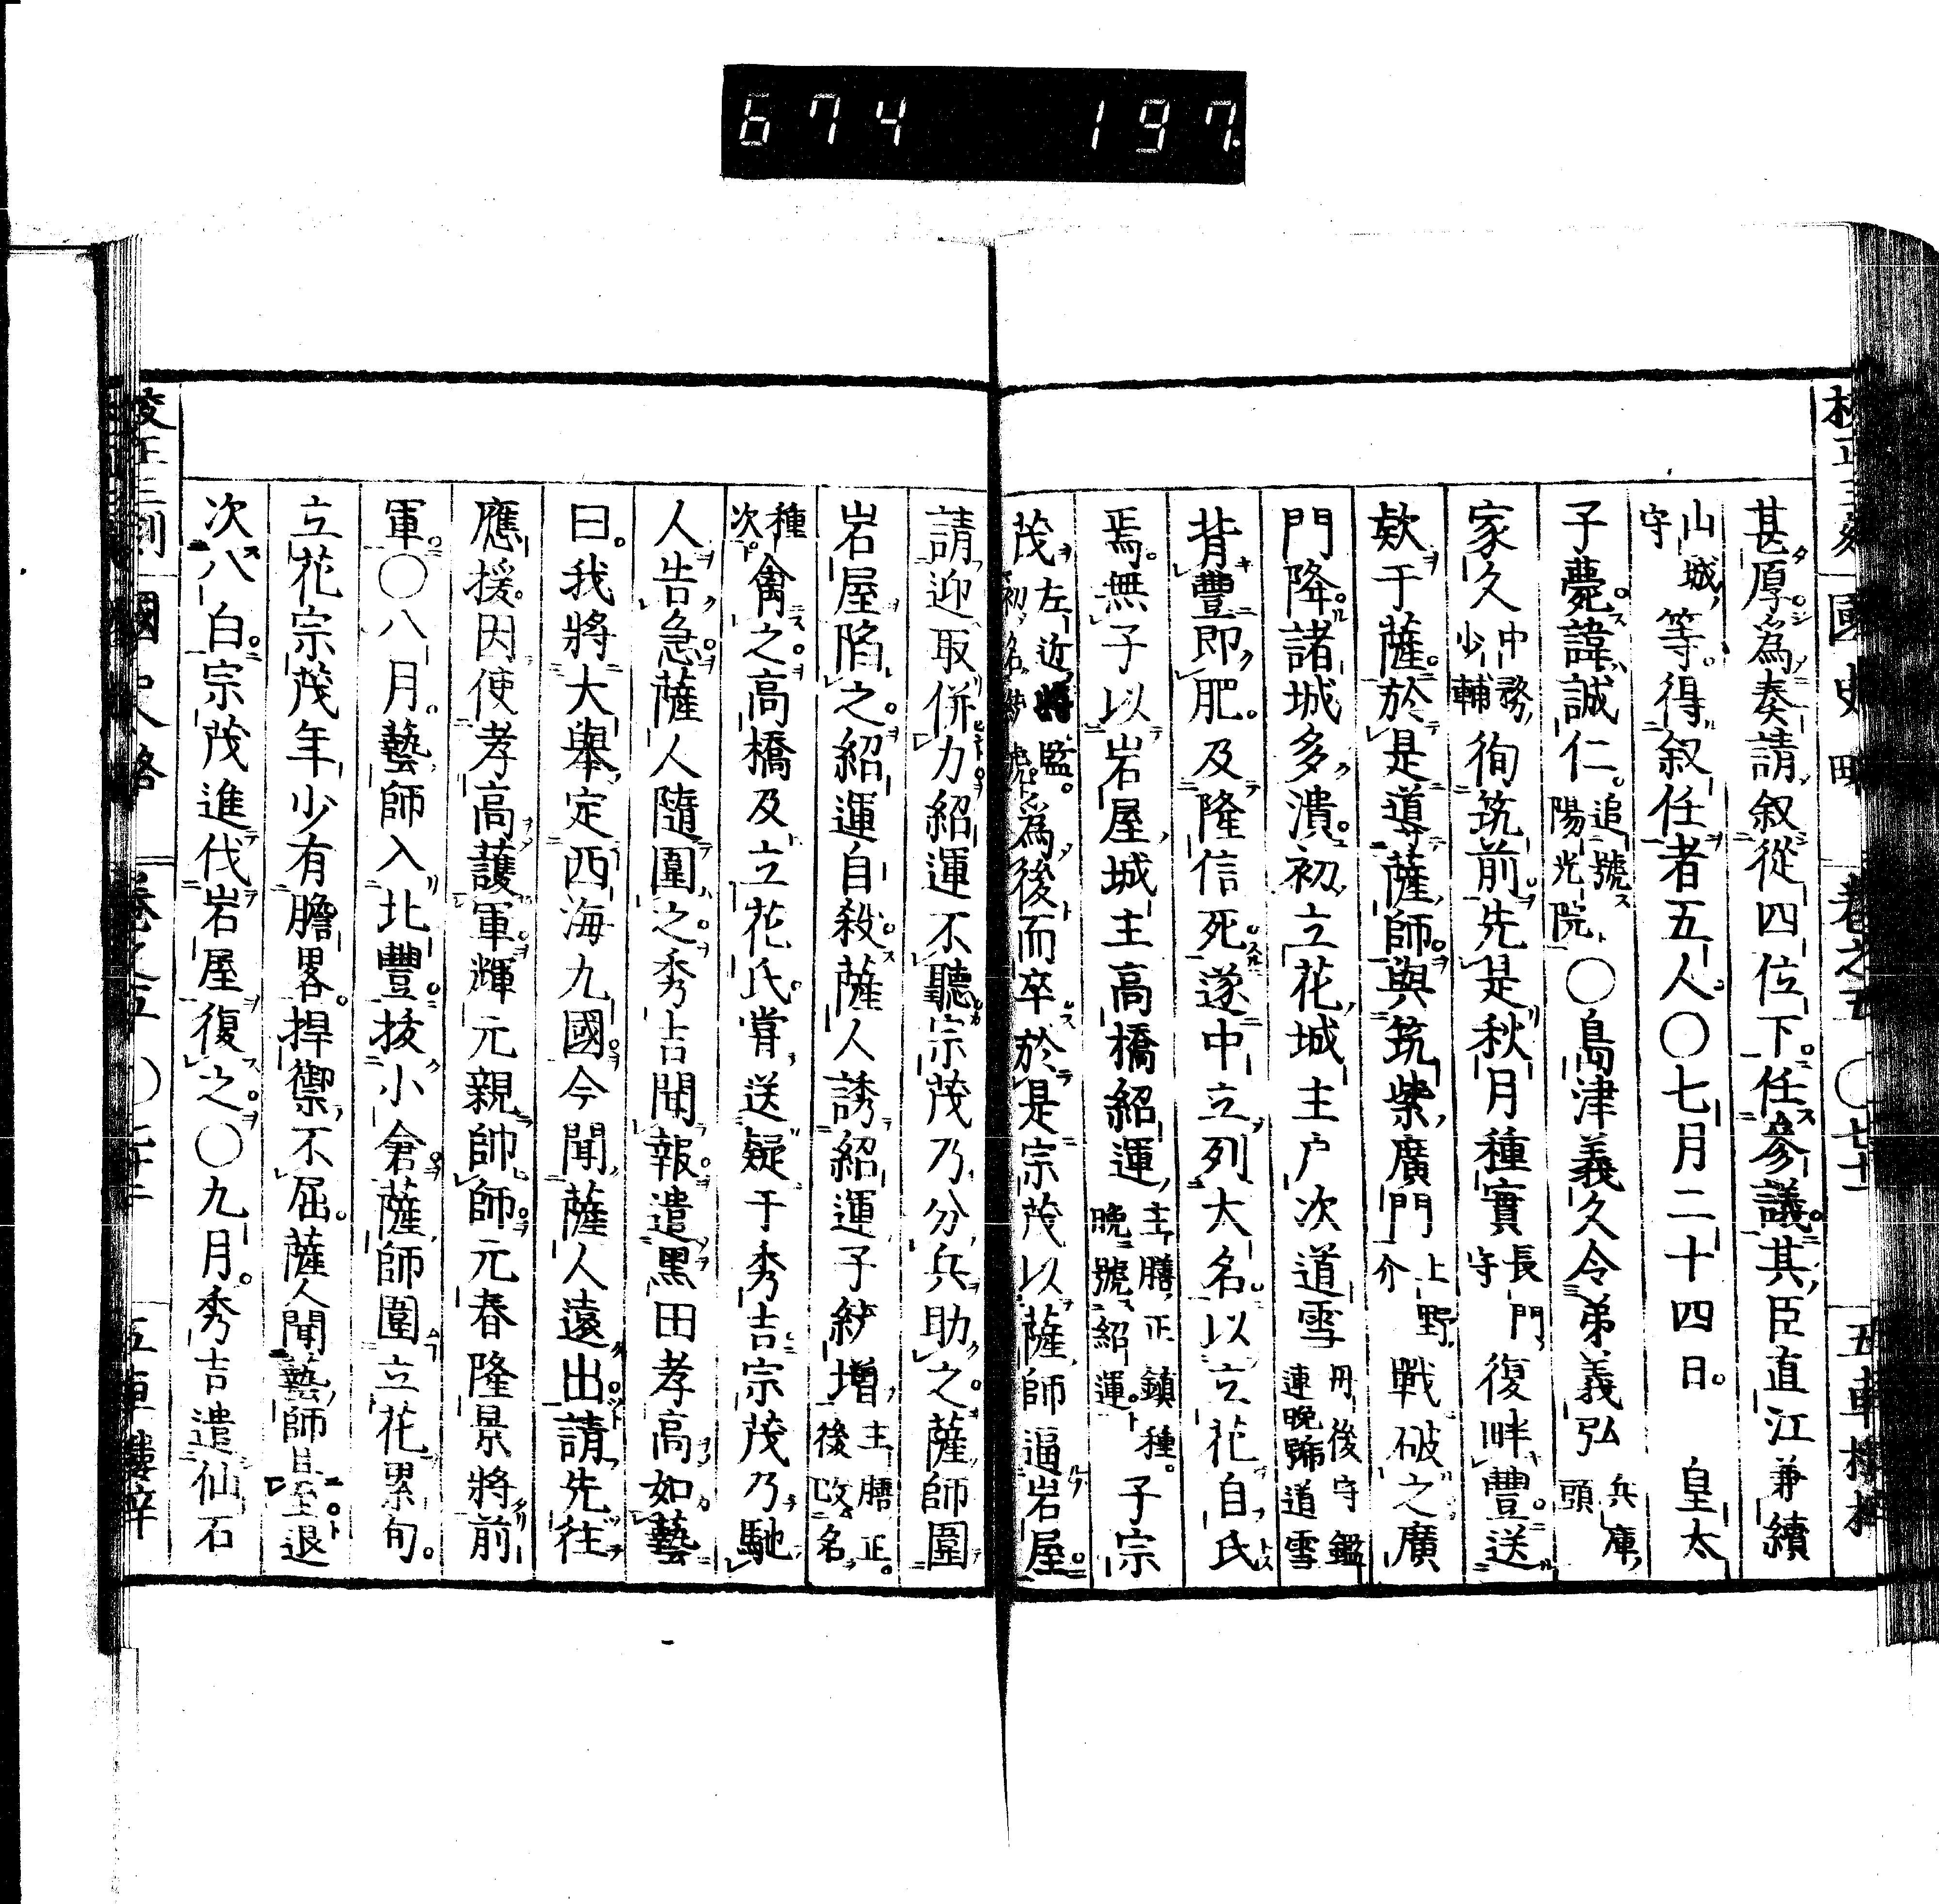 674 197
國史略 卷之五
甚厚爲奏請叙從四位下任參議其臣直江兼續
山城守等得叙任者五人〇七月二十四日 皇太
子薨諱誠仁追號陽光院〇島津義久令弟義弘兵庫頭
家久中務少輔徇筑前先是秋月種實長門守復畔豐送
欵于薩於是導薩師與筑紫廣門上野介戰破之廣
門降諸城多潰初立花城主戸次道雪丹後守鑑連晩號道雪
背豐即肥及隆信死遂中立列大名以立花自氏
焉無子以岩屋城主高橋紹運主膳正鎮種晩號紹運子宗
茂左近將監初名爲後而卒於是宗茂以薩師逼岩屋
請迎取併力紹運不聽宗茂乃分兵助之薩師圍
岩屋陷之紹運自殺薩人誘紹運子統增主膳正後改名
種次禽之高橋及立花氏嘗送疑于秀吉宗茂乃馳
人告急薩人隨圍之秀吉聞報遣黒田孝高如藝
曰我將大舉定西海九國今聞薩人遠出請先往
應援因使孝高護軍輝元親帥師元春隆景將前
軍〇八月藝師入北豐拔小倉薩師圍立花累旬
立花宗茂年少有膽畧捍禦不屈薩人聞藝師且至退
次八白宗茂進伐岩屋復之〇九月秀吉遣仙石
國史略 卷之五